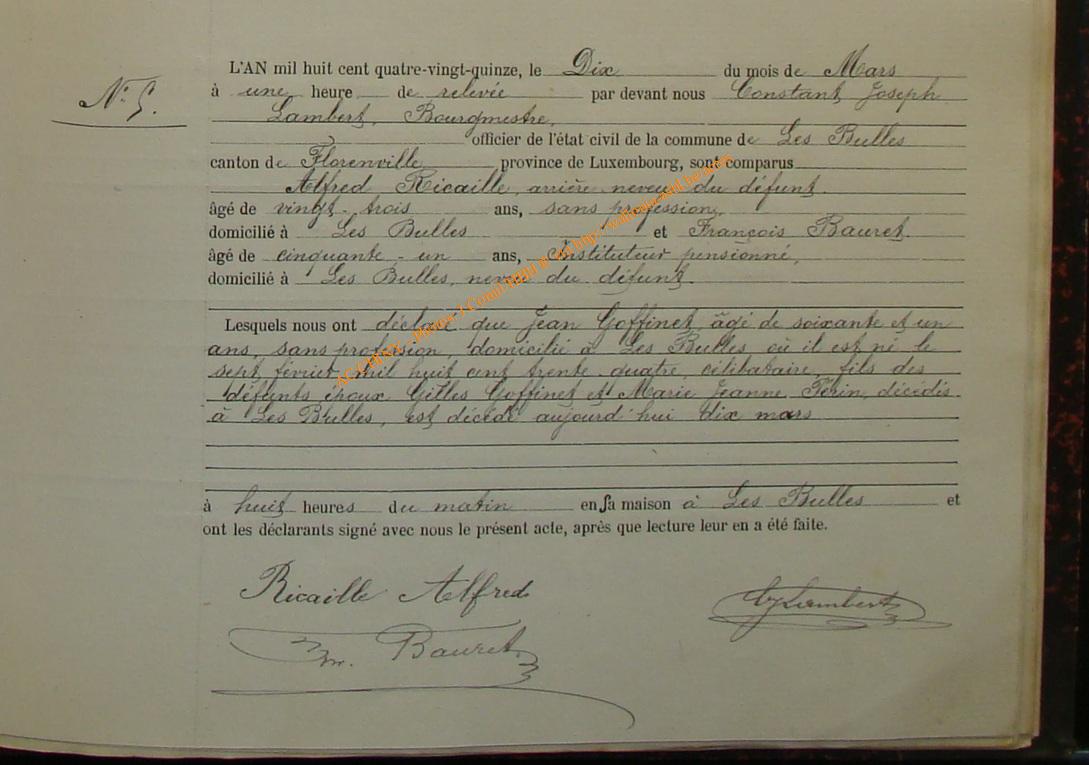 L'AN mil huit cent quatre-vingt-quinze, le Dix du mois de Mars
N° 5.
à une heure de relevée par devant nous Constant Joseph
Lambert, Bourgmestre,
officier de l'état civil de la commune de Les Bulles
canton de Florenville province de Luxembourg, sont comparus
Alfred Ricaille, arrière neveu du défunt
âgé de vingt-trois ans, sans profession,
domicilié à Les Bulles et François Bauret
âgé de cinquante-un ans, instituteur pensionné,
domicilié à Les Bulles, neveu du défunt.
Lesquels nous ont déclaré que Jean Goffinet, âgé de soixante et un
ans, sans profession, domicilié à Les Bulles où il est né le
sept février mil huit cent trente-quatre, célibataire, fils des
défunts époux Gilles Goffinet et Marie Jeanne Perin, décédés
à Les Bulles, est décédé aujourd'hui dix mars
à huit heures du matin en sa maison à Les Bulles et
ont les déclarants signé avec nous le présent acte, après que lecture leur en a été faite.
Ricaille Alfred
CJLambert
Bauret